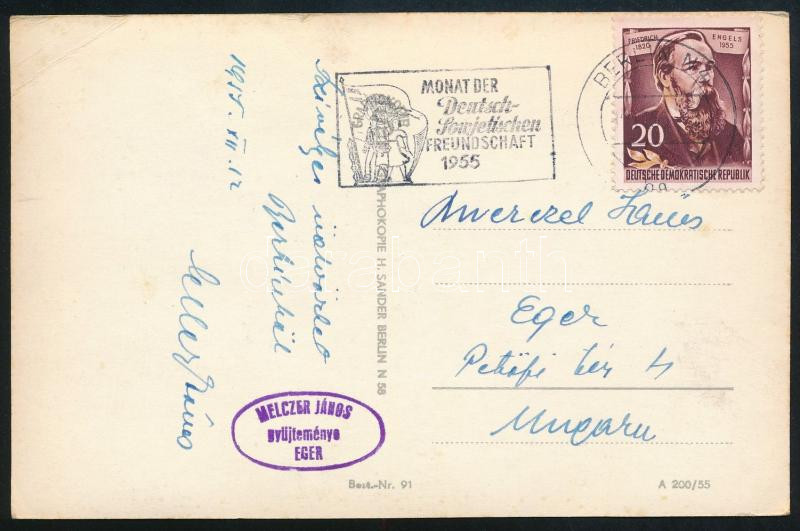 1955. XII. 12
Szívélyes üdvözlet
Berlinből
János
MELCZER JÁNOS
gyűjteménye
EGER
GRAPHOKOPIE H. SANDER BERLIN N 58
MONAT DER
Deutsch-
Sowjetischen
FREUNDSCHAFT
1955
FRIEDRICH ENGELS
1820 1955
20
DEUTSCHE DEMOKRATISCHE REPUBLIK
János
Eger
Petőfi tér 4
Ungarn
Best.-Nr. 91
A 200/55
darabanth